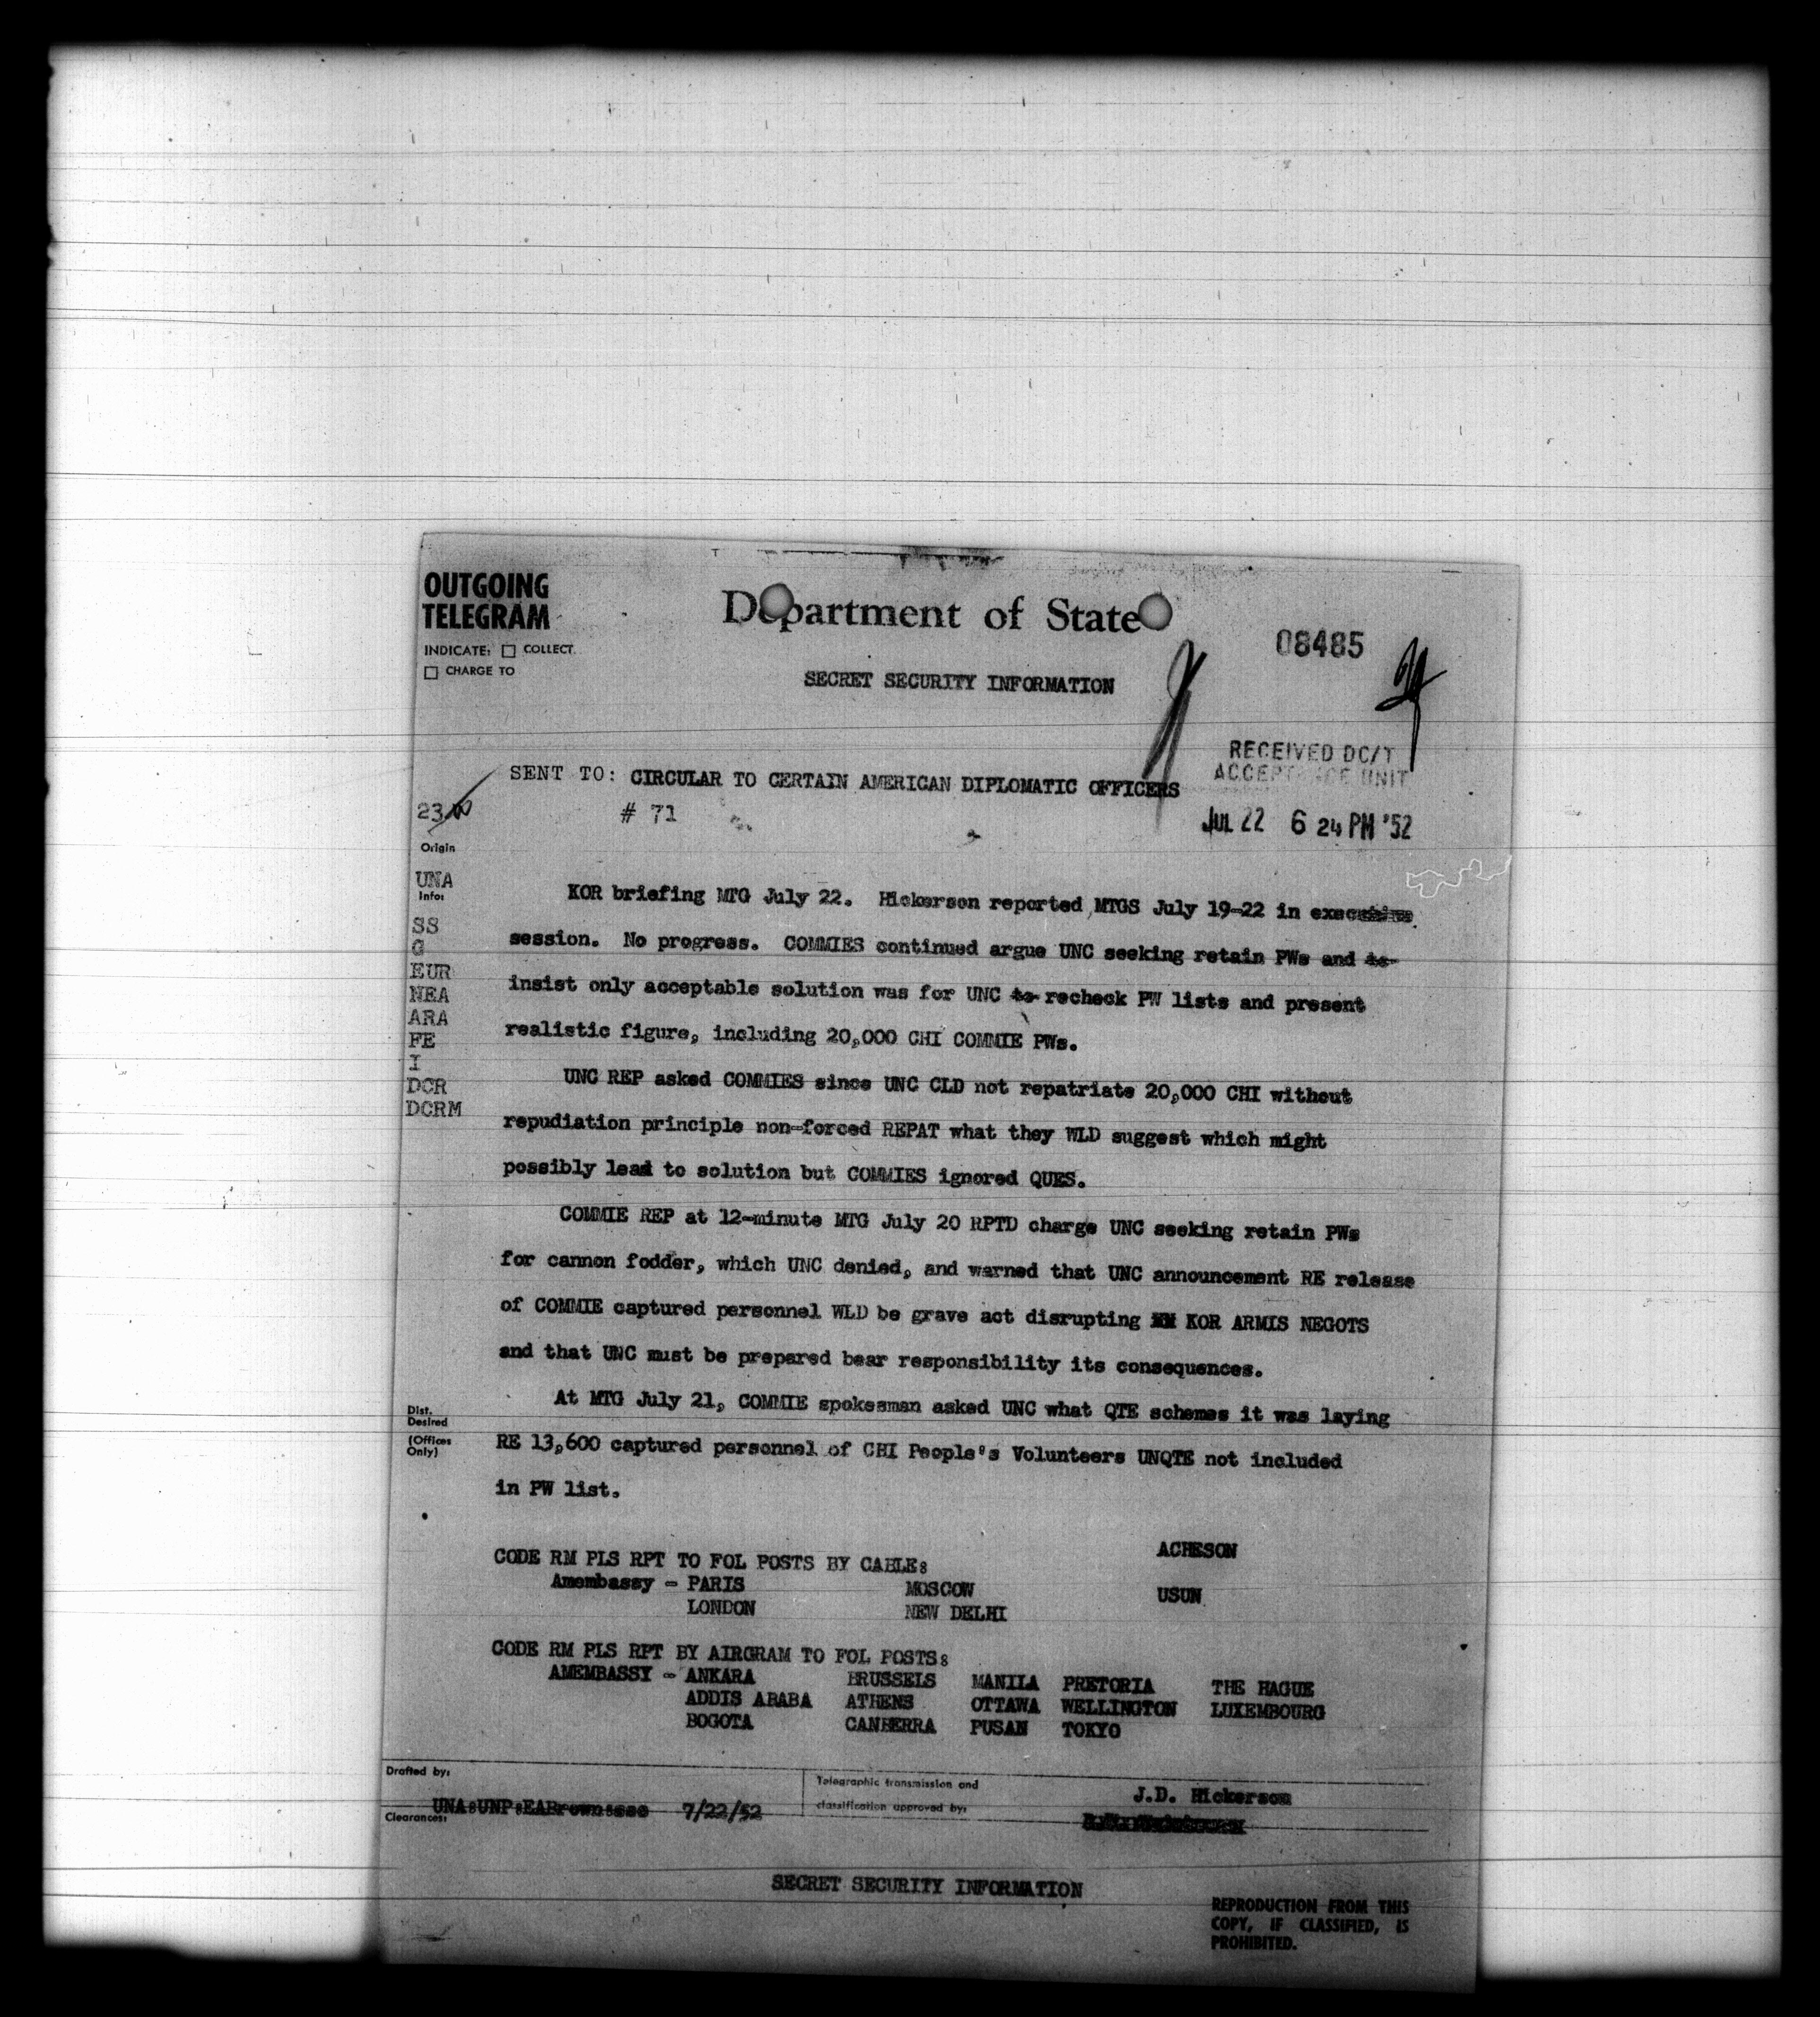 OUTGOING
TELEGRAM
INDICATE: ☐ COLLECT
☐ CHARGE TO
Department of State
08485
SECRET SECURITY INFORMATION
RECEIVED DC/T
ACCEPTANCE UNIT
SENT TO: CIRCULAR TO CERTAIN AMERICAN DIPLOMATIC OFFICERS
# 71
JUL 22 6 24 PM '52
23
Origin
UNA
Info:
SS
G
EUR
NEA
ARA
FE
I
DCR
DCRM
KOR briefing MTG July 22. Hickerson reported MTGS July 19-22 in executive
session. No progress. COMMIES continued argue UNC seeking retain PWs and to
insist only acceptable solution was for UNC to recheck PW lists and present
realistic figure, including 20,000 CHI COMMIE PWs.
UNC REP asked COMMIES since UNC CLD not repatriate 20,000 CHI without
repudiation principle non-forced REPAT what they WLD suggest which might
possibly lead to solution but COMMIES ignored QUES.
COMMIE REP at 12-minute MTG July 20 RPTD charge UNC seeking retain PWs
for cannon fodder, which UNC denied, and warned that UNC announcement RE release
of COMMIE captured personnel WLD be grave act disrupting KOR ARMIS NEGOTS
and that UNC must be prepared bear responsibility its consequences.
At MTG July 21, COMMIE spokesman asked UNC what QTE schemes it was laying
RE 13,600 captured personnel of CHI People's Volunteers UNQTE not included
in PW list.
Dist.
Desired
(Offices
Only)
ACHESON
CODE RM PLS RPT TO FOL POSTS BY CABLE:
Amembassy - PARIS MOSCOW USUN
LONDON NEW DELHI
CODE RM PLS RPT BY AIRGRAM TO FOL POSTS:
AMEMBASSY - ANKARA BRUSSELS MANILA PRETORIA THE HAGUE
ADDIS ABABA ATHENS OTTAWA WELLINGTON LUXEMBOURG
BOGOTA CANBERRA PUSAN TOKYO
Drafted by:
UNA:UNP:EABrown:seo 7/22/52
Telegraphic transmission and
classification approved by:
J.D. Hickerson
Clearances:
SECRET SECURITY INFORMATION
REPRODUCTION FROM THIS
COPY, IF CLASSIFIED, IS
PROHIBITED.